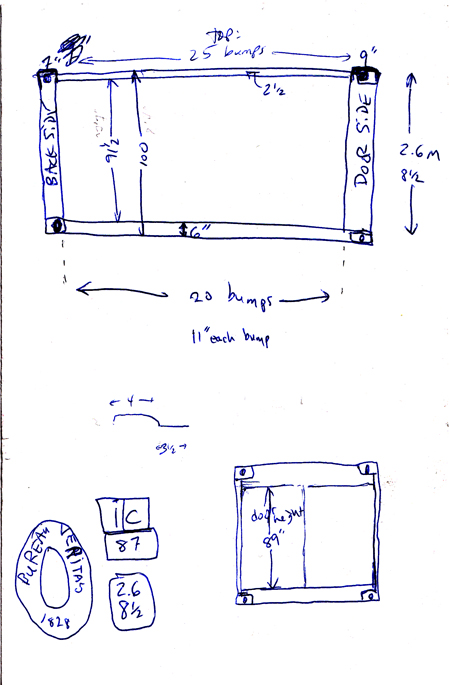 TOP:
25 bumps
7"
9"
2 1/2
BACK SIDE
9 1/2
100
DOOR SIDE
2.6 M
8 1/2
6"
20 bumps
11" each bump
4
3 1/2
door height
89"
I C
87
2.6
8 1/2
BUREAU VERITAS
1828